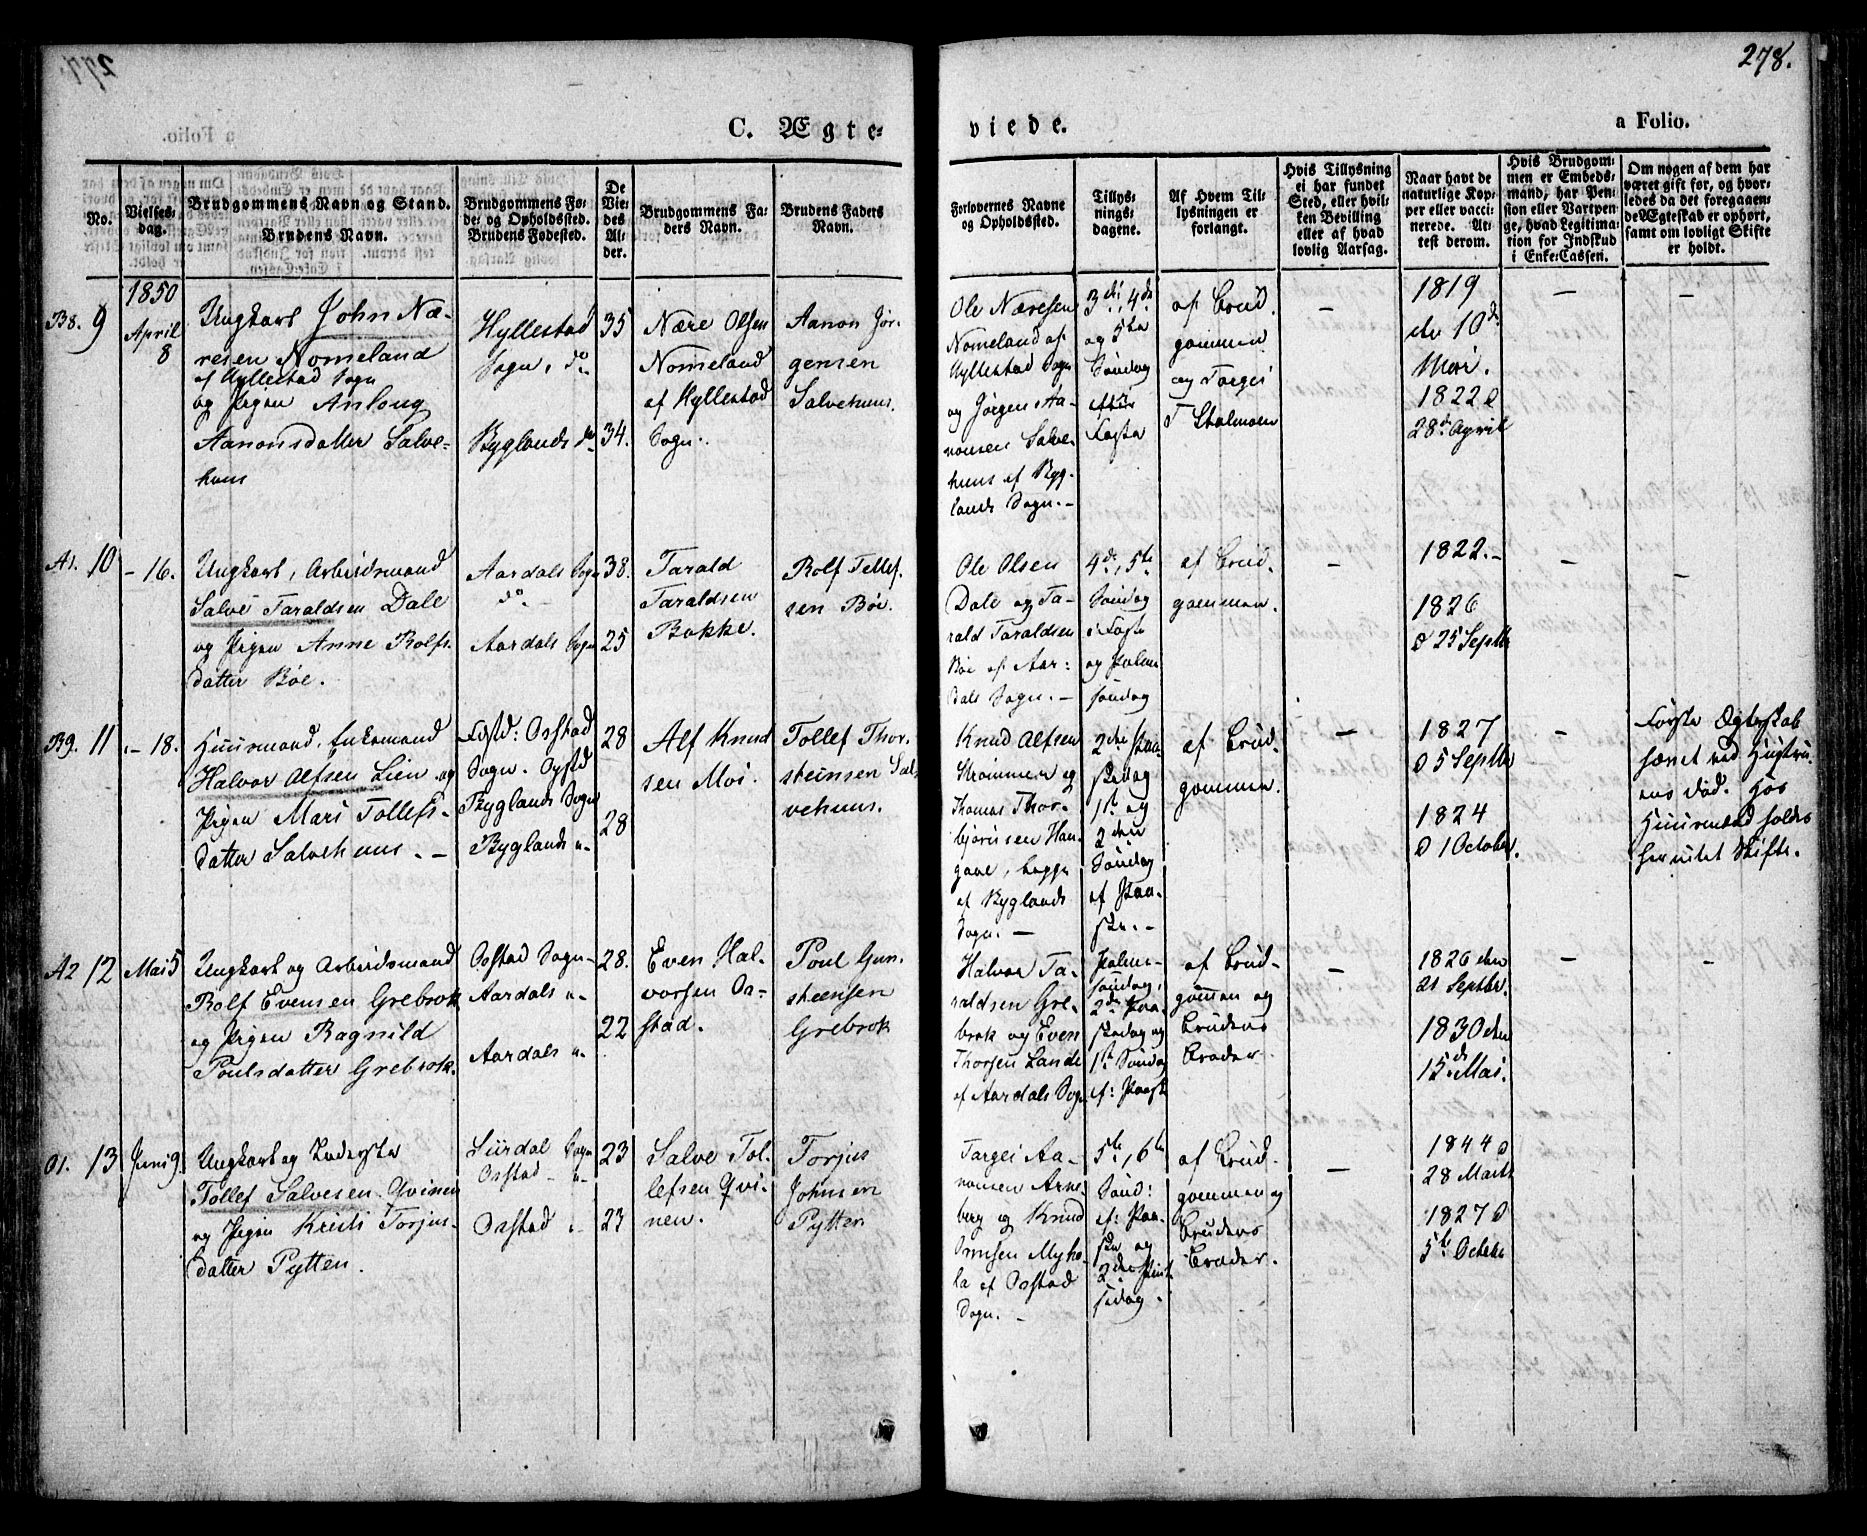 278.
C. Ægte-
viede.
a Folio.
No.
Vielses-
dag.
Brudgommens Navn og Stand.
Brudens Navn.
Brudgommens Fø-
de- og Opholdssted.
Brudens Fødested.
De
Vie-
des
Al-
der.
Brudgommens Fa-
ders Navn.
Brudens Faders
Navn.
Forlovernes Navne
og Opholdssted.
Tillys-
nings-
dagene.
Af Hvem Til-
lysningen er
forlangt.
Hvis Tillysning
ei har fundet
Sted, eller hvil-
ken Bevilling
eller af hvad
lovlig Aarsag.
Naar havt de
naturlige Kop-
per eller vacci-
nerede. At-
test derom.
Hvis Brudgom-
men er Embeds-
mand, har Pen-
sion eller Vartpen-
ge, hvad Legitima-
tion for Indskud
i Enke-Cassen.
Om nogen af dem har
været gift før, og hvor-
ledes da det foregaaen-
de Ægteskab er ophørt,
samt om lovligt Skifte
er holdt.
B8. 9
1850
April
8
Ungkarl John Næ-
resen Nomeland
af Hyllestad Sogn
og Pigen Anlong
Aanonsdatter Salve-
huus
Hyllestad
Sogn, do
Byglands do
35
34.
Nære Olsen
Nomeland
af Hyllestad
Sogn.
Aanon Jør-
gensen
Salvehuus.
Ole Næresen
Nomeland af
Hyllestad Sogn
og Jørgen Aa-
nonsen Salve-
huus af Byg-
lands Sogn. —
3die, 4de
og 5te
Søndag
efter
Faste
af Brud-
gommen
og Targei
T. Stalmoen
—
1819
den 10de
Mai.
1822 d
28de April
—
—
A1. 10
— 16.
Ungkarl, Arbeidsmand
Salve Taraldsen Dale
og Pigen Anne Rolfs-
datter Bøe.
Aardals Sogn
do —
Aardals Sogn
38.
25
Tarald
Taraldsen
Bakke.
Rolf Tellef-
sen Bøe.
Ole Olsen
Dale og Ta-
rald Taraldsen
Bøe af Aar-
dals Sogn. —
4de, 5te
Søndag
i Faste
og Palme
søndag
af Brud-
gommen.
1822. —
1826
d 25 Septbr
—
—
B9. 11
— 18.
Huusmand, Enkemand
Halvor Alfsen Lien og
Pigen Mari Tollefs-
datter Salvehuus. —
Føsd: Osstad
Sogn. Opstd
Byglands Sogn
Byglands "
28
28
Alf Knud
sen Moi.
Tollef Thor-
steinsen Sal-
vehuus.
Knud Alfsen
Strømmen og
Thomas Thor-
bjørnsen Han-
gaae, begge
af Byglands
Sogn. —
2den Paa-
skedag
1ste og
2den
Søndag
af Paa-
ske. —
af Brud-
gommen.
—
1827
d 5 Septbr
1824
d 1 October.
—
Første Ægteskab
hævet ved Hustru-
ens Død. Hos
Huusmænd holdes
heruitet Skifte.
A2 12
Mai 5
Ungkarl og Arbeidsmand
Rolf Evensen Grebrok
og Pigen Ragnild
Poulsdatter Grebrok.
Osstad Sogn
Aardals "
Aardals "
28.
22
Even Hal-
vorsen Os-
stad.
Poul Gun-
steensen
Grebrok
Halvor Ta-
raldsen Gre-
brok og Even
Thorsen Lande
af Aardals Sogn
Palme-
søndag,
2den Paa-
skedag og
1ste Søndag
ef: Paaske
af Brud-
gommen og
Brudens
Broder.
—
1826 den
21 Septbr.
1830 den
15de Mai.
—
—
O1. 13
Juni 9.
Ungkarl og Inderste
Tollef Salvesen Qvinen
og Pigen Kristi Torjus-
datter Pytten.
Siirdal Sogn
Osstad "
Osstad "
23
23
Salve Tol-
lefsen Qvi-
nen.
Torjus
Johnsen
Pytten
Targei Aa-
nonsen Arne-
berg og Knud
Omsen Myho-
la af Osstad
Sogn. —
5te, 6te
Sønd:
ef: Paa-
ske og
2den Pint-
sedag.
af Brud-
gommen og
Brudens
Broder.
—
1844 d
28 Marts
1827 d
5te Octobr